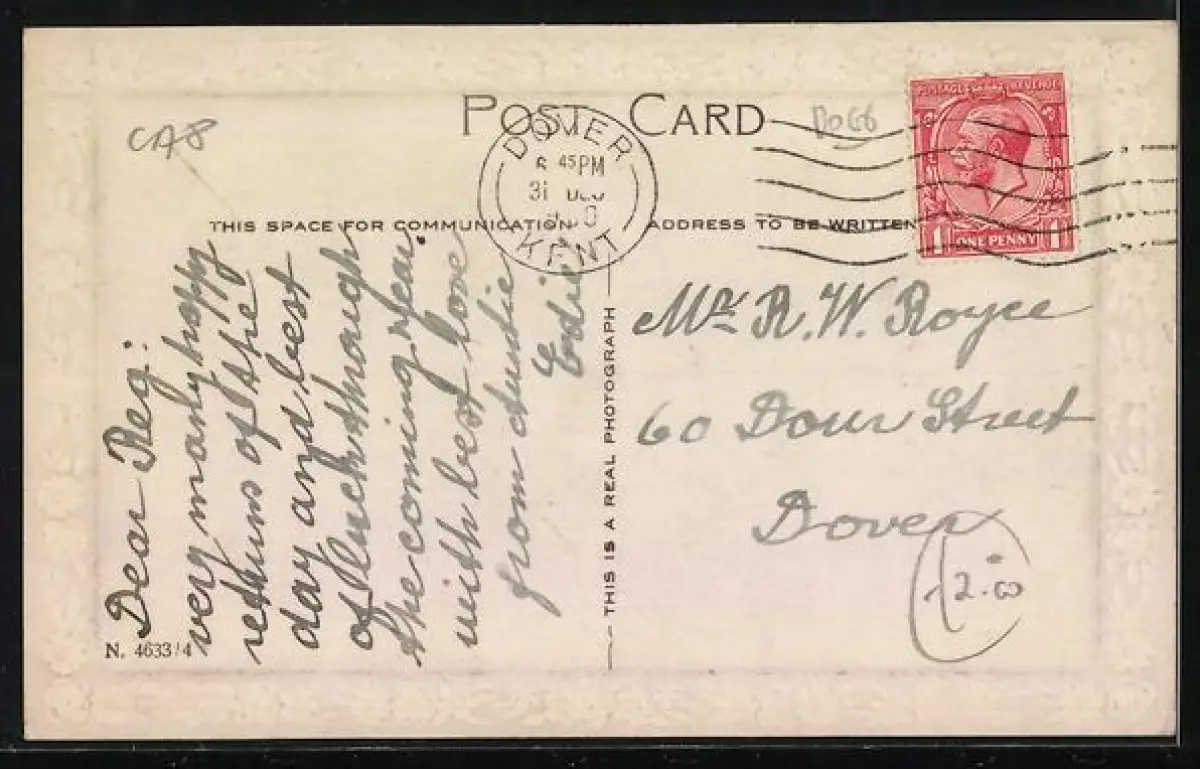 POST CARD
CA8
DoGG
DOVER
45 PM
31 DEC
KENT
POSTAGE REVENUE
1 ONE PENNY 1
THIS SPACE FOR COMMUNICATION
ADDRESS TO BE WRITTEN
Dear Reg:
very many happy
returns of the
day and best
of luck through
the coming year.
with best love
from Auntie
Edie
THIS IS A REAL PHOTOGRAPH
Mr R. W. Royce
60 Dour Street
Dover
2.00
N. 4633/4